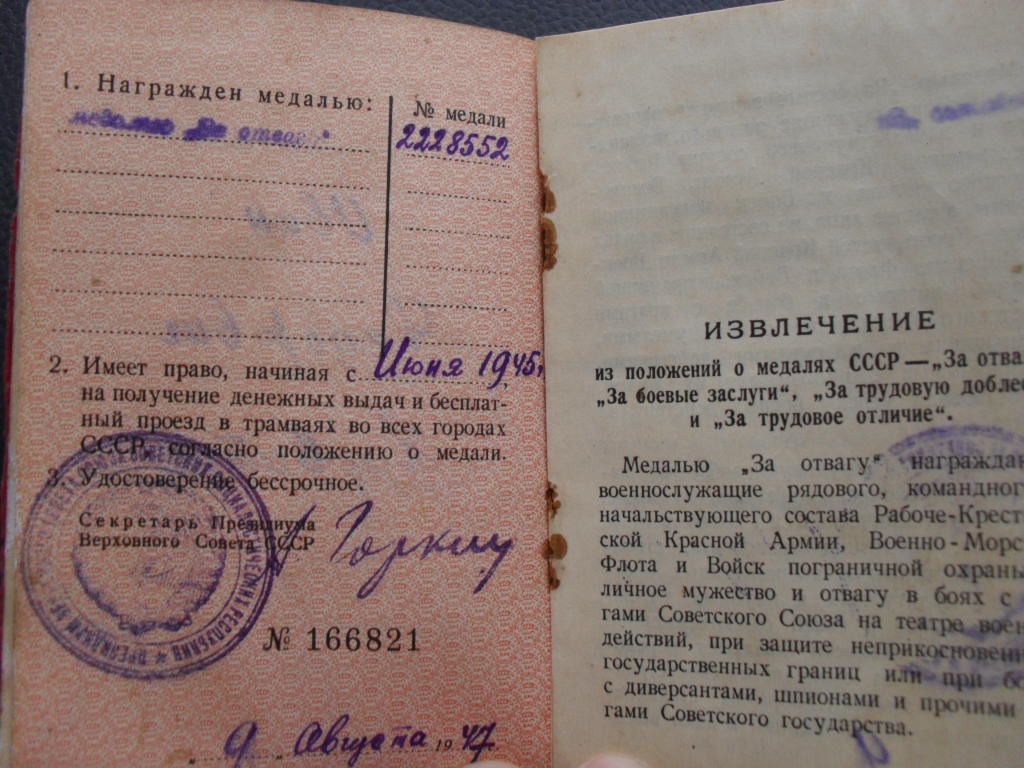 1. Награжден медалью:
№ медали
медалью „За отвагу"
2228552
2. Имеет право, начиная с Июня 1945г.
на получение денежных выдач и бесплат-
ный проезд в трамваях во всех городах
СССР, согласно положению о медали.
3. Удостоверение бессрочное.
Секретарь Президиума
Верховного Совета СССР
Горкин
№ 166821
„9" Августа 1947.
ИЗВЛЕЧЕНИЕ
из положений о медалях СССР — „За отва
„За боевые заслуги", „За трудовую доблес
и „За трудовое отличие".
Медалью „За отвагу" награждаю
военнослужащие рядового, командног
начальствующего состава Рабоче-Крест
ской Красной Армии, Военно-Морс
Флота и Войск пограничной охраны
личное мужество и отвагу в боях с
гами Советского Союза на театре воен
действий, при защите неприкосновенн
государственных границ или при бо
с диверсантами, шпионами и прочими
гами Советского государства.